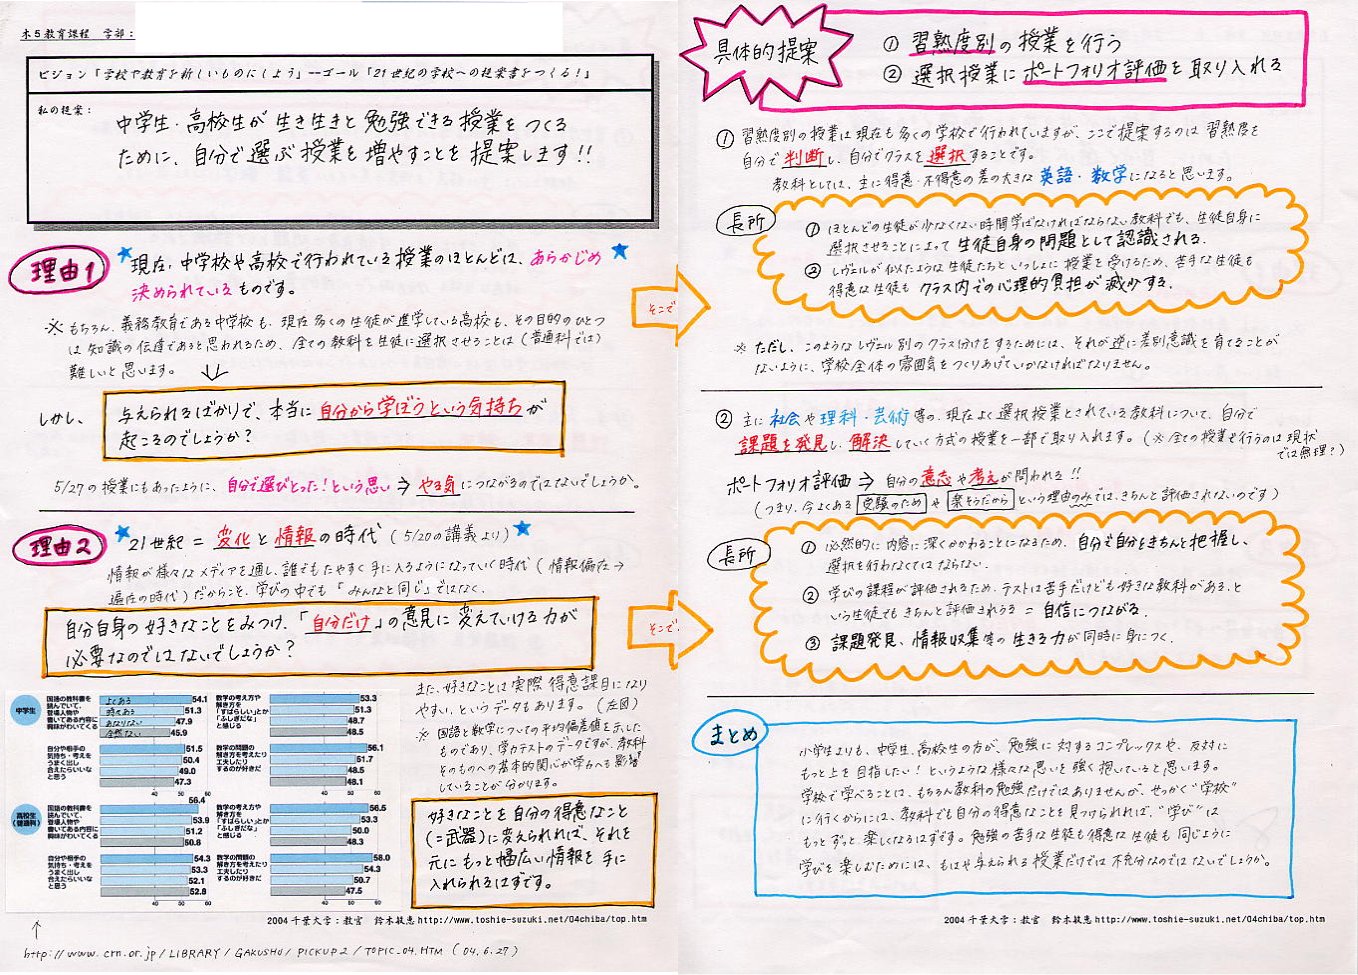 木5教育課程 学部:
ビジョン「学校や教育を新しいものにしよう」--ゴール「21世紀の学校への提案書をつくる!」
私の提案:
中学生・高校生が生き生きと勉強できる授業をつくる
ために、自分で選ぶ授業を増やすことを提案します!!
理由1
現在、中学校や高校で行われている授業のほとんどは、あらかじめ
決められているものです。
※もちろん、義務教育である中学校も、現在多くの生徒が進学している高校も、その目的のひとつ
は知識の伝達であると思われるため、全ての教科を生徒に選択させることは(普通科では)
難しいと思います。
しかし、
与えられるばかりで、本当に自分から学ぼうという気持ちが
起こるのでしょうか?
5/27の授業にもあったように、自分で選びとった!という思い⇒やる気につながるのではないでしょうか。
理由2
21世紀=変化と情報の時代(5/20の講義より)
情報が様々なメディアを通し、誰でもたやすく手に入るようになっていく時代(情報偏在→
遍在の時代)だからこそ、学びの中でも「みんなと同じ」ではなく、
自分自身の好きなことをみつけ、「自分だけ」の意見に変えていける力が
必要なのではないでしょうか?
中学生
国語の教科書を
読んでいて、
登場人物や
書いてある内容に
興味がわいてくる
よくある 54.1
時々ある 51.3
あまりない 47.9
全然ない 45.9
数学の考え方や
解き方を
「すばらしい」とか
「ふしぎだな」
と感じる
53.3
51.3
48.7
48.5
自分や相手の
気持ち・考えを
うまく出し
合えたらいいな
と思う
51.5
50.4
49.0
47.3
数学の問題の
解き方を考えたり
工夫したり
するのが好きだ
56.1
51.7
48.5
48.1
40 50 60 40 50 60
高校生
(普通科)
国語の教科書を
読んでいて、
登場人物や
書いてある内容に
興味がわいてくる
56.4
53.9
51.2
50.8
数学の考え方や
解き方を
「すばらしい」とか
「ふしぎだな」
と感じる
56.5
53.3
50.0
48.3
自分や相手の
気持ち・考えを
うまく出し
合えたらいいな
と思う
54.3
53.3
52.1
52.8
数学の問題の
解き方を考えたり
工夫したり
するのが好きだ
58.0
54.3
50.7
47.5
40 50 60 40 50 60
また、好きなことは実際、得意課目になり
やすい、というデータもあります。(左図)
※ 国語と数学についての平均偏差値を示した
ものであり、学力テストのデータですが、教科
そのものへの基本的関心が学力へも影響
していることが分かります。
好きなことを自分の得意なこと
(=武器)に変えられれば、それを
元にもっと幅広い情報を手に
入れられるはずです。
2004千葉大学:教官 鈴木敏恵http://www.toshie-suzuki.net/04chiba/top.htm
http://www.crn.or.jp/LIBRARY/GAKUSHU/PICKUP2/TOPIC_04.HTM (04.6.27)
具体的提案
① 習熟度別の授業を行う
② 選択授業にポートフォリオ評価を取り入れる
① 習熟度別の授業は現在も多くの学校で行われていますが、ここで提案するのは習熟度を
自分で判断し、自分でクラスを選択することです。
教科としては、主に得意・不得意の差の大きな英語・数学になると思います。
長所
① ほとんどの生徒が少なくない時間学ばなければならない教科でも、生徒自身に
選択させることによって生徒自身の問題として認識される。
② レヴェルが似たような生徒たちといっしょに授業を受けるため、苦手な生徒も
得意な生徒もクラス内での心理的負担が減少する。
そこで
※ ただし、このようなレヴェル別のクラス分けをするためには、それが逆に差別意識を育てることが
ないように、学校全体の雰囲気をつくりあげていかなければなりません。
② 主に社会や理科・芸術等の、現在よく選択授業とされている教科について、自分で
課題を発見し、解決していく方式の授業を一部で取り入れます。(※全ての授業で行うのは現状
では無理?)
ポートフォリオ評価→自分の意志や考えが問われる!!
(つまり、今よくある受験のためや楽そうだからという理由のみでは、きちんと評価されないのです)
長所
① 必然的に内容に深くかかわることになるため、自分で自分をきちんと把握し、
選択を行わなくてはならない。
② 学びの課程が評価されるため、テストは苦手だけども好きな教科がある、と
いう生徒でもきちんと評価されうる=自信につながる。
③ 課題発見、情報収集等の生きる力が同時に身につく。
そこで
まとめ
小学生よりも、中学生、高校生の方が、勉強に対するコンプレックスや、反対に
もっと上を目指したい!というような様々な思いを強く抱いていると思います。
学校で学べることは、もちろん教科の勉強だけではありませんが、せっかく“学校”
に行くからには、教科でも自分の得意なことを見つけられれば、“学び”は
もっとずっと楽しくなるはずです。勉強の苦手な生徒も得意な生徒も同じように
学びを楽しむためには、もはや与えられる授業だけでは不充分なのではないでしょうか。
2004千葉大学:教官 鈴木敏恵http://www.toshie-suzuki.net/04chiba/top.htm